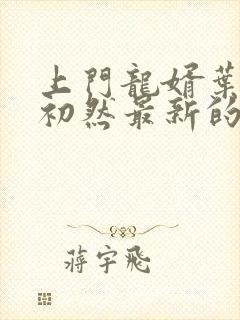 上門龍婿葉
初然最新的
蔣宇飛